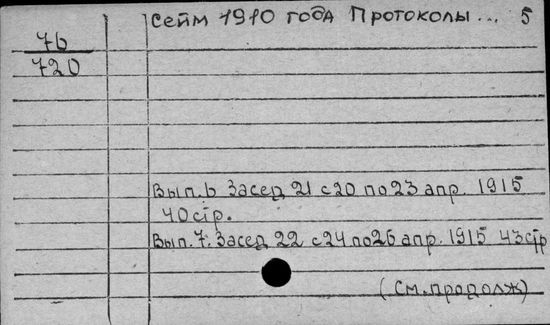 Сейм 1910 года Протоколы... 5
7б
720
Вып. 6 Засед 21 с 20 по 23 апр. 1915
40 стр.
Вып. 7. Засед 22 с 24 по 26 апр. 1915 43 стр
(См. продолж)